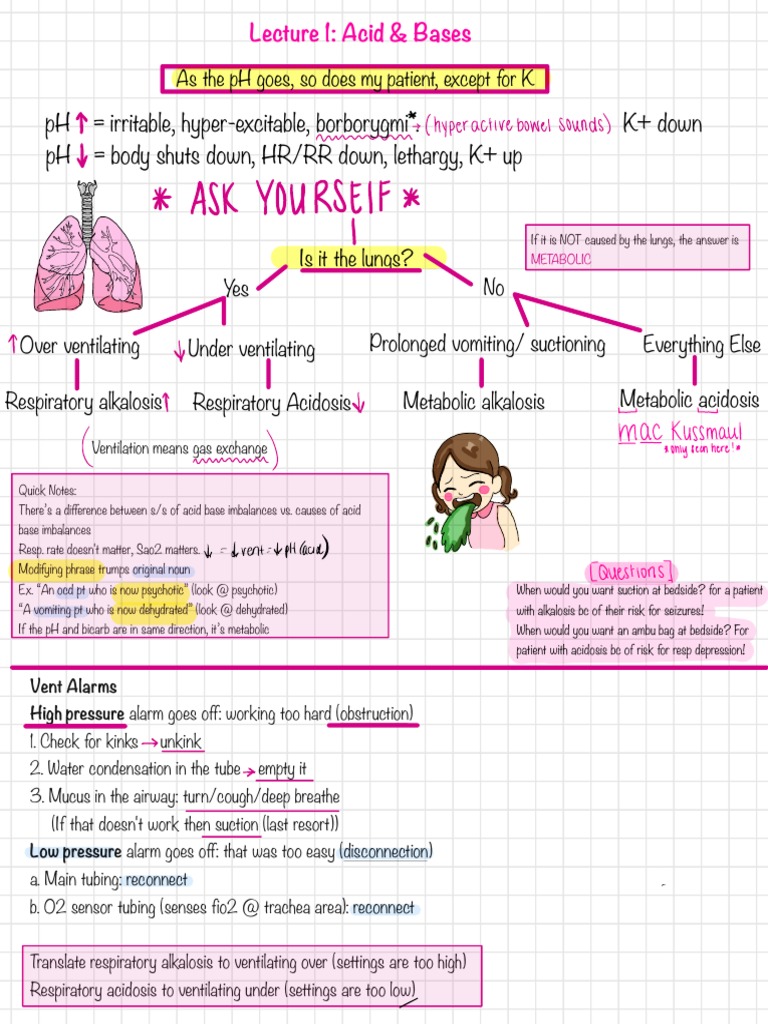 Lecture 1: Acid & Bases
As the pH goes, so does my patient, except for K
pH ↑ = irritable, hyper-excitable, borborygmi* (hyperactive bowel sounds) K+ down
pH ↓ = body shuts down, HR/RR down, lethargy, K+ up
* ASK YOURSELF *
If it is NOT caused by the lungs, the answer is
METABOLIC
Is it the lungs?
Yes
No
↑Over ventilating
↓Under ventilating
Prolonged vomiting/ suctioning
Everything Else
Respiratory alkalosis↑
Respiratory Acidosis↓
Metabolic alkalosis
Metabolic acidosis
mac Kussmaul
*only seen here!*
(Ventilation means gas exchange)
Quick Notes:
There's a difference between s/s of acid base imbalances vs. causes of acid
base imbalances
Resp. rate doesn't matter, Sao2 matters. ↓ = ↓vent = ↓pH (acid)
Modifying phrase trumps original noun
Ex. "An ocd pt who is now psychotic" (look @ psychotic)
"A vomiting pt who is now dehydrated" (look @ dehydrated)
If the pH and bicarb are in same direction, it's metabolic
[Questions]
When would you want suction at bedside? for a patient
with alkalosis bc of their risk for seizures!
When would you want an ambu bag at bedside? For
patient with acidosis bc of risk for resp depression!
Vent Alarms
High pressure alarm goes off: working too hard (obstruction)
1. Check for kinks →unkink
2. Water condensation in the tube →empty it
3. Mucus in the airway: turn/cough/deep breathe
(If that doesn't work then suction (last resort))
Low pressure alarm goes off: that was too easy (disconnection)
a. Main tubing: reconnect
b. O2 sensor tubing (senses fio2 @ trachea area): reconnect
Translate respiratory alkalosis to ventilating over (settings are too high)
Respiratory acidosis to ventilating under (settings are too low)